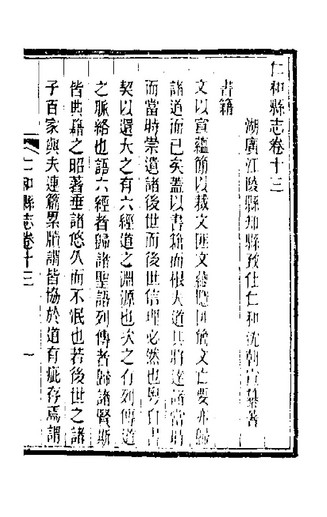 仁和縣志卷十三
湖廣江陵縣知縣致仕仁和沈朝宣纂著
書籍
文以宣蘊籍以載文匪文會隱匪籍文亡要亦歸
諸道而已矣蓋以書籍而根大道其將達諸當時
而當時崇遺諸後世而後世信理必然也粵自書
契以還大之有六經道之淵源也次之有列傳道
之脈絡也語六經者歸諸聖語列傳者歸諸賢斯
皆典籍之昭著垂諸悠久而不泯也若後世之諸
子百家與夫連篇累牘謂皆協於道有疵存焉謂
仁和縣志卷十三
一